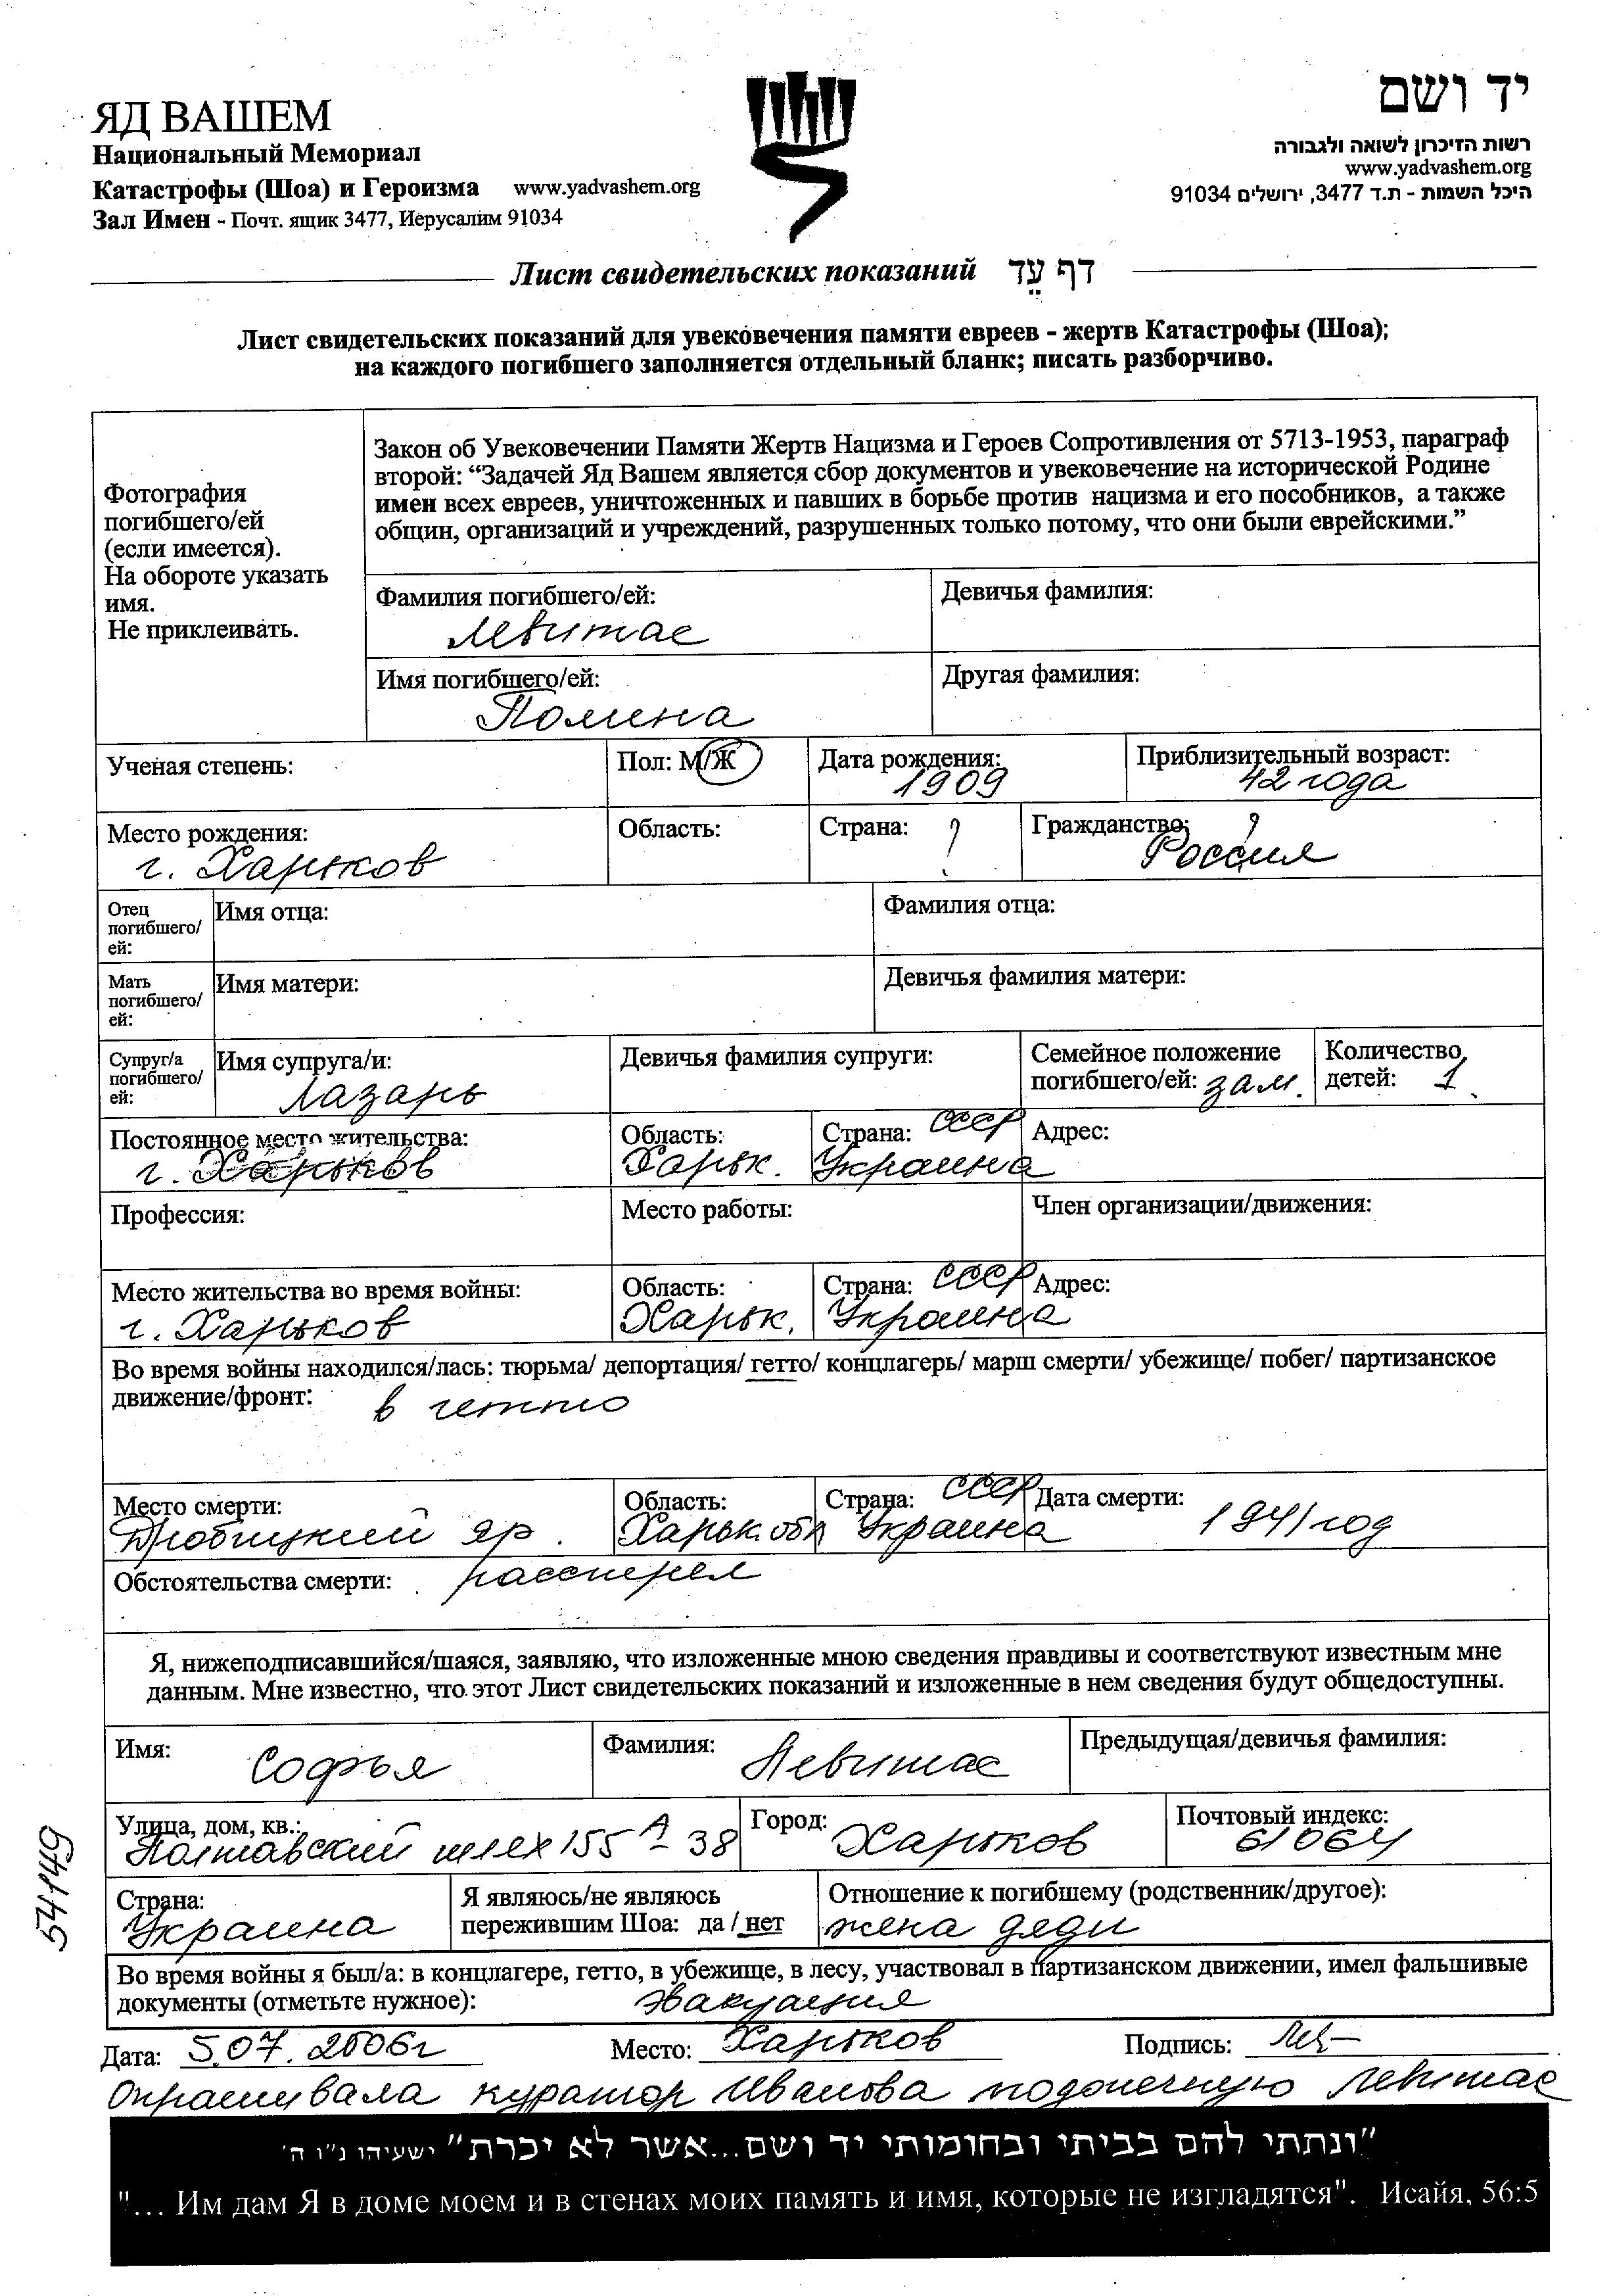 ЯД ВАШЕМ
Национальный Мемориал
Катастрофы (Шоа) и Героизма www.yadvashem.org
Зал Имен - Почт. ящик 3477, Иерусалим 91034
יד ושם
רשות הזיכרון לשואה ולגבורה
www.yadvashem.org
היכל השמות - ת.ד 3477, ירושלים 91034
Лист свидетельских показаний דף עֵד
Лист свидетельских показаний для увековечения памяти евреев - жертв Катастрофы (Шоа);
на каждого погибшего заполняется отдельный бланк; писать разборчиво.
Фотография
погибшего/ей
(если имеется).
На обороте указать
имя.
Не приклеивать.
Закон об Увековечении Памяти Жертв Нацизма и Героев Сопротивления от 5713-1953, параграф
второй: “Задачей Яд Вашем является сбор документов и увековечение на исторической Родине
имен всех евреев, уничтоженных и павших в борьбе против нацизма и его пособников, а также
общин, организаций и учреждений, разрушенных только потому, что они были еврейскими.”
Фамилия погибшего/ей:
Левитас
Девичья фамилия:
Имя погибшего/ей:
Полина
Другая фамилия:
Ученая степень:
Пол: М/Ж
Дата рождения:
1909
Приблизительный возраст:
42 года
Место рождения:
г. Харьков
Область:
Страна: ?
Гражданство: ?
Россия
Отец
погибшего/
ей:
Имя отца:
Фамилия отца:
Мать
погибшего/
ей:
Имя матери:
Девичья фамилия матери:
Супруг/а
погибшего/
ей:
Имя супруга/и:
Лазарь
Девичья фамилия супруги:
Семейное положение
погибшего/ей: зам.
Количество
детей: 1
Постоянное место жительства:
г. Харьков
Область:
Харьк.
Страна: СССР
Украина
Адрес:
Профессия:
Место работы:
Член организации/движения:
Место жительства во время войны:
г. Харьков
Область:
Харьк.
Страна: СССР
Украина
Адрес:
Во время войны находился/лась: тюрьма/ депортация/ гетто/ концлагерь/ марш смерти/ убежище/ побег/ партизанское
движение/фронт: в гетто
Место смерти:
Дробицкий яр.
Область:
Харьк. обл
Страна: СССР
Украина
Дата смерти:
1941 год
Обстоятельства смерти: расстрел
Я, нижеподписавшийся/шаяся, заявляю, что изложенные мною сведения правдивы и соответствуют известным мне
данным. Мне известно, что этот Лист свидетельских показаний и изложенные в нем сведения будут общедоступны.
Имя: Софья
Фамилия: Левитас
Предыдущая/девичья фамилия:
Улица, дом, кв.:
Полтавский шлях 155 А - 38
Город: Харьков
Почтовый индекс:
61064
Страна:
Украина
Я являюсь/не являюсь
пережившим Шоа: да / нет
Отношение к погибшему (родственник/другое):
жена дяди
Во время войны я был/а: в концлагере, гетто, в убежище, в лесу, участвовал в партизанском движении, имел фальшивые
документы (отметьте нужное): эвакуация
Дата: 5.07.2006г Место: Харьков Подпись: Лев-
Опрашивала куратор Иванова подопечную Левитас
"ונתתי להם בביתי ובחומותי יד ושם...אשר לא יכרת" ישעיהו נ"ו ה'
"... Им дам Я в доме моем и в стенах моих память и имя, которые не изгладятся". Исайя, 56:5
54149